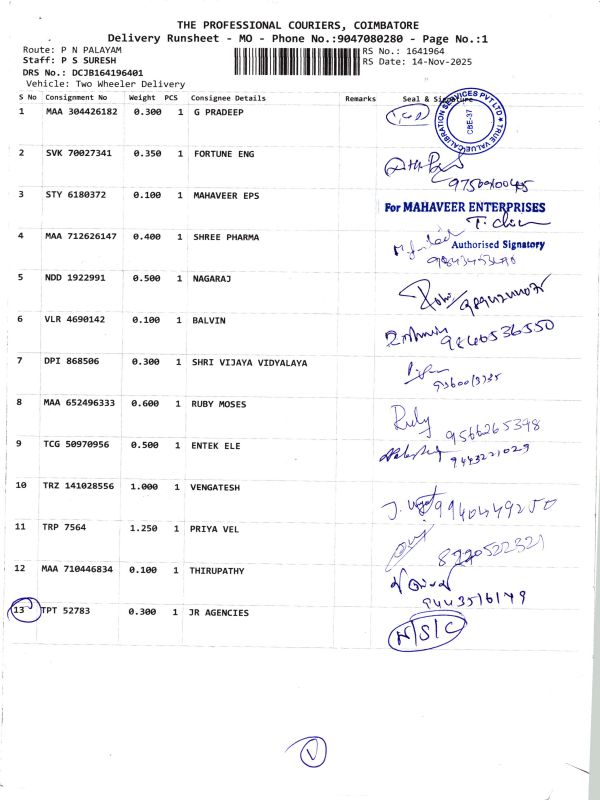 THE PROFESSIONAL COURIERS, COIMBATORE
Delivery Runsheet - MO - Phone No.:9047080280 - Page No.:1
Route: P N PALAYAM RS No.: 1641964
Staff: P S SURESH RS Date: 14-Nov-2025
DRS No.: DCJB164196401
Vehicle: Two Wheeler Delivery
S No Consignment No Weight PCS Consignee Details Remarks Seal & Signature
1 MAA 304426182 0.300 1 G PRADEEP
TRUE VALUE CALIBRATION SERVICES PVT LTD
CBE-37
2 SVK 70027341 0.350 1 FORTUNE ENG
3 STY 6180372 0.100 1 MAHAVEER EPS
For MAHAVEER ENTERPRISES
4 MAA 712626147 0.400 1 SHREE PHARMA
Authorised Signatory
5 NDD 1922991 0.500 1 NAGARAJ
6 VLR 4690142 0.100 1 BALVIN
9846536550
7 DPI 868506 0.300 1 SHRI VIJAYA VIDYALAYA
8 MAA 652496333 0.600 1 RUBY MOSES
Ruby 9566265398
9 TCG 50970956 0.500 1 ENTEK ELE
9443221029
10 TRZ 141028556 1.000 1 VENGATESH
9940449250
11 TRP 7564 1.250 1 PRIYA VEL
8220522321
12 MAA 710446834 0.100 1 THIRUPATHY
9443516179
13 TPT 52783 0.300 1 JR AGENCIES
N/S/C